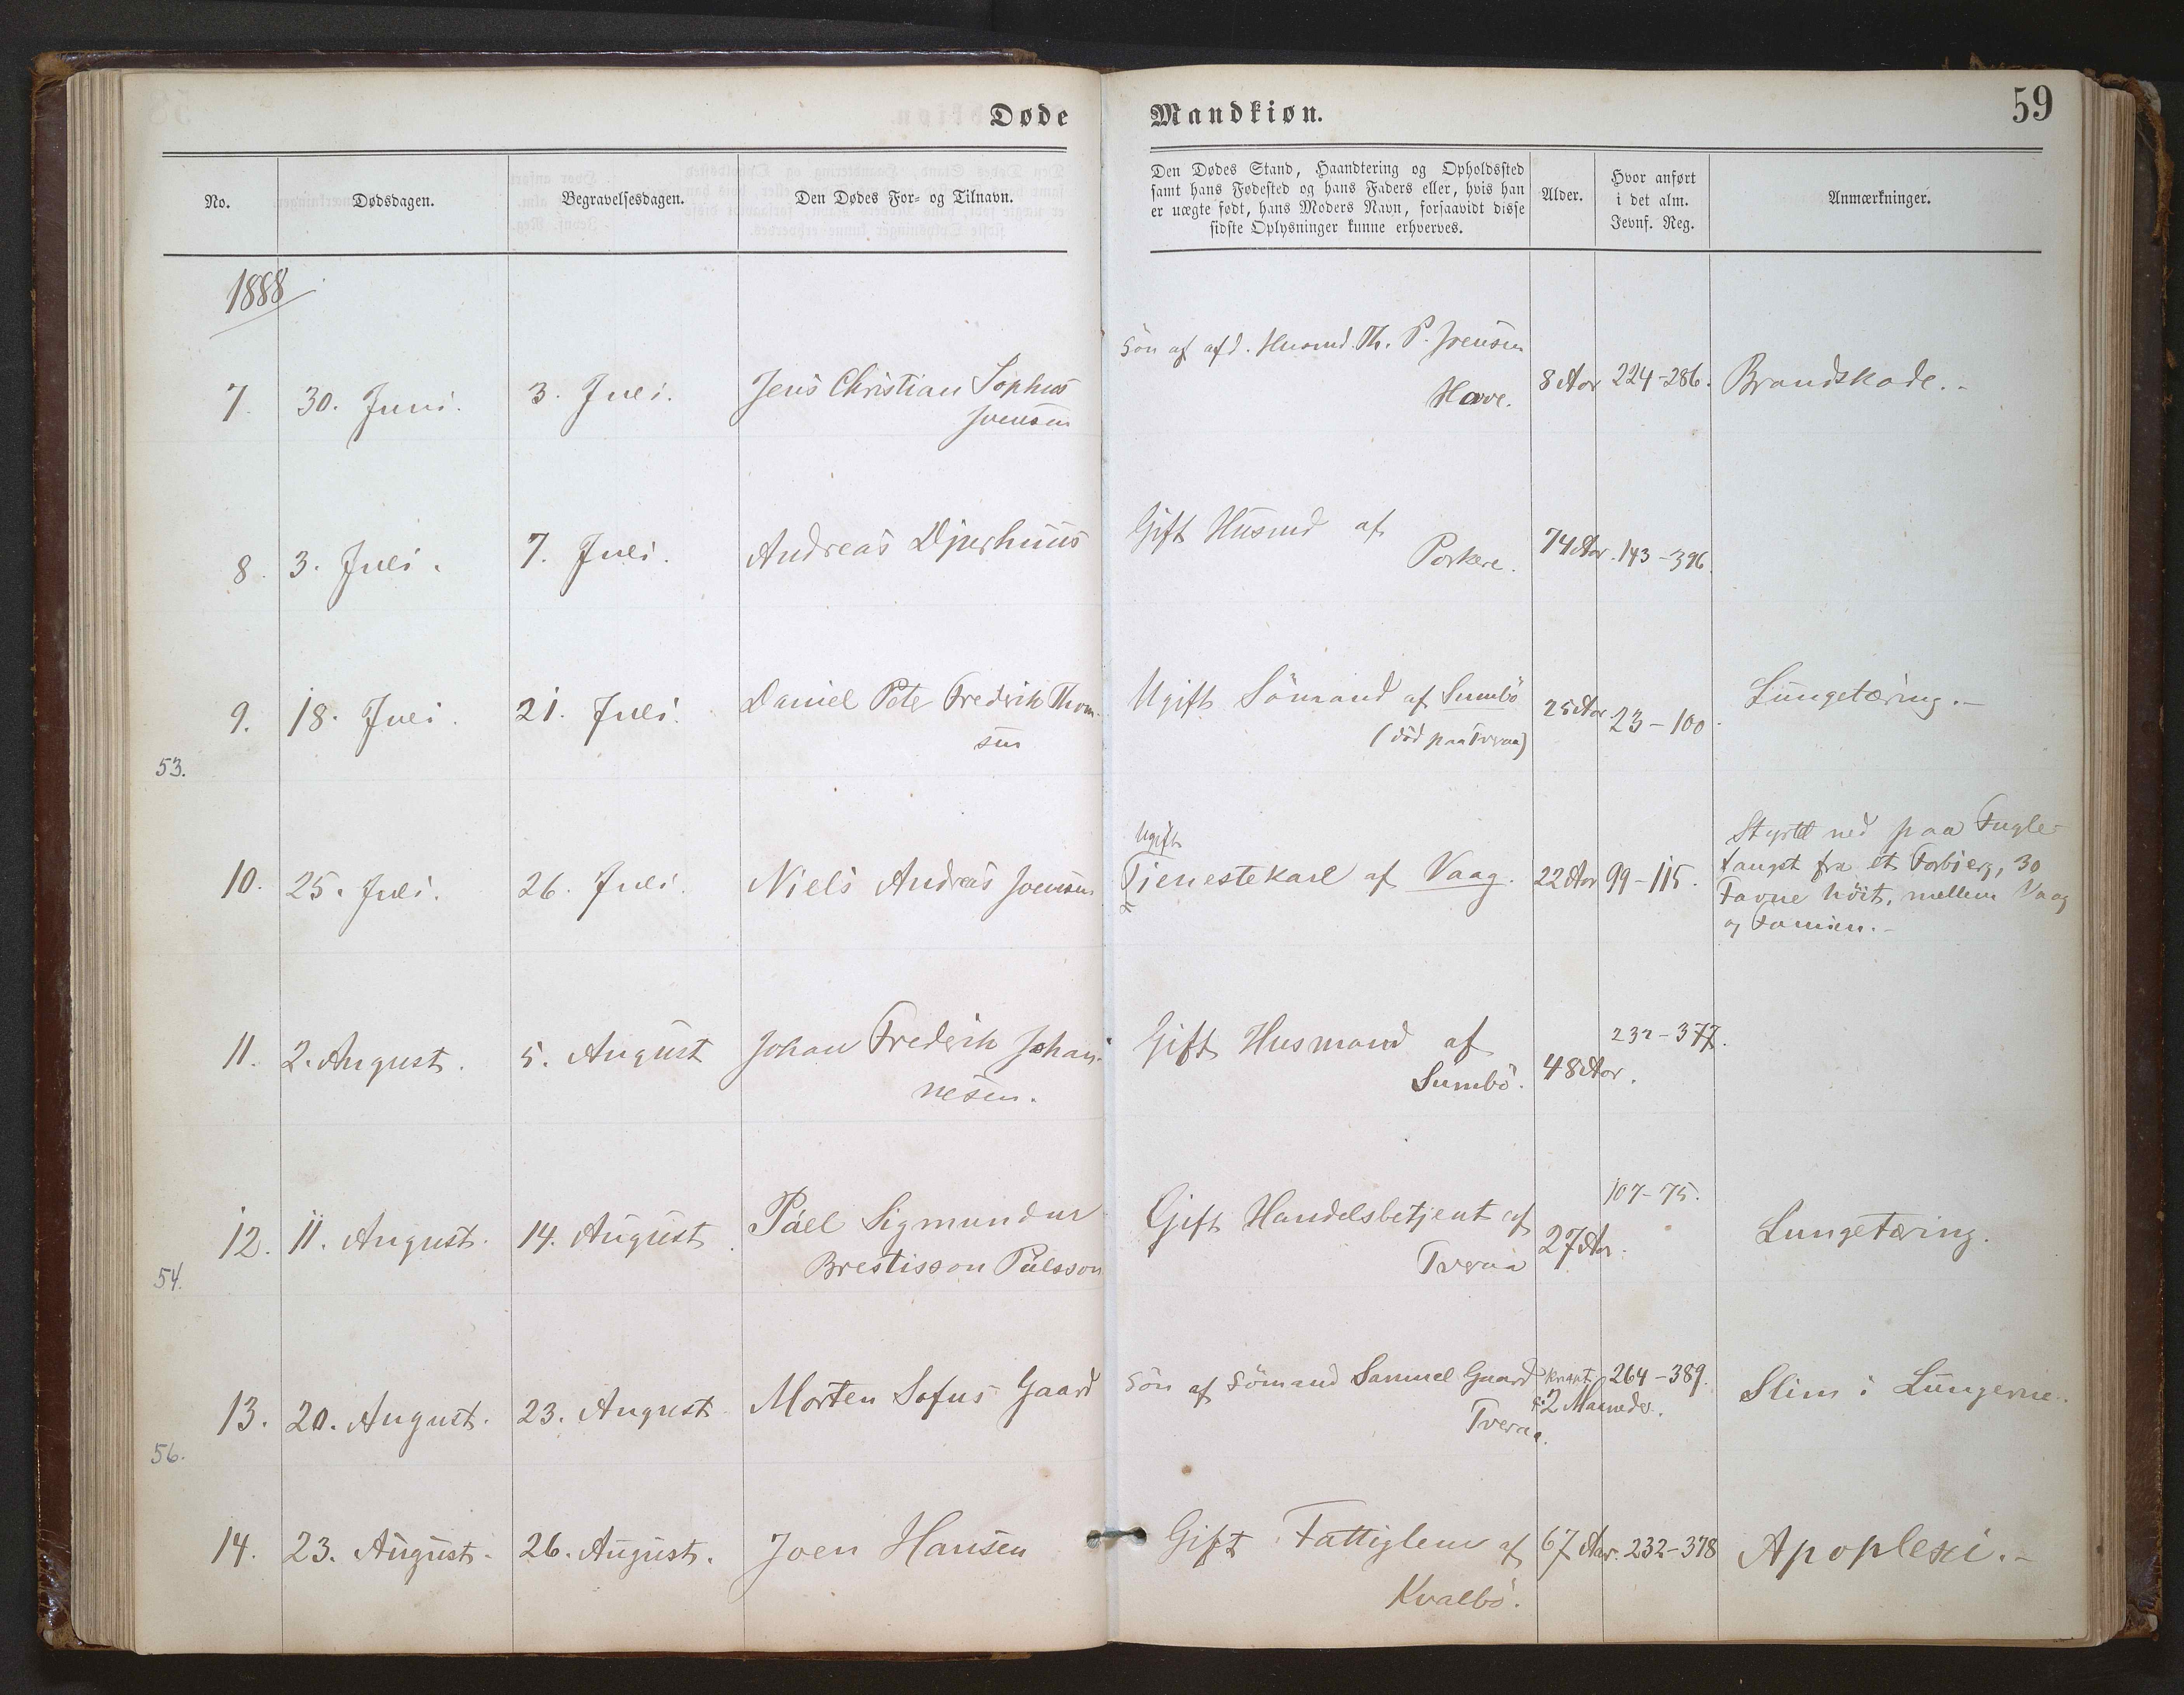 Døde
Mandkiøn.
59
No.
Dødsdagen.
Begravelsesdagen.
Den Dødes For- og Tilnavn.
Den Dødes Stand, Haandtering og Opholdssted
samt hans Fødested og hans Faders eller, hvis han
er uægte født, hans Moders Navn, forsaavidt disse
sidste Oplysninger kunne erhverves.
Alder.
Hvor anført
i det alm.
Jevnf. Reg.
Anmærkninger.
1888
7. 30. Juni. 3. Juli. Jens Christian Sophus
Joensen
Søn af afd. Husmd. Th. P. Joensen
Hove.
8 Aar 224-286. Brandskade.-
8. 3. Juli. 7. Juli. Andreas Djurhuus
Gift Husmd af
Porkere.
74 Aar. 143-396.
9. 18. Juli. 21. Juli. Daniel Peter Frederik Thom-
sen
Ugift Sömand af Sumbö
(död paa Tveraa)
25 Aar 23-100. Lungetæring.-
53.
10. 25. Juli. 26. Juli. Niels Andreas Joensen
Ugift
Tienestekarl af Vaag. 22 Aar 99-115.
Styrtet ned paa Fugle-
fangst fra et Forbierg, 30
Favne höit, mellem Vaag
og Famien.-
11. 2. August. 5. August Johan Frederik Johan-
nesen.
Gift Husmand af
Sumbö.
48 Aar.
232-377.
12. 11. August. 14. August. Páll Sigmundur
Brestisson Pálsson
Gift Handelsbetjent af
Tveraa
27 Aar.
107-75.
Lungetæring.
54.
13. 20. August. 23. August Morten Sofus Gaard
Søn af Sömand Samuel Gaard
Tveraa.
knapt
2 Maaneder.
264-389.
Slim i Lungerne.
56.
14. 23. August. 26. August. Joen Hansen
Gift Fattiglem af
Kvalbö.
67 Aar. 232-378 Apoplexi.-